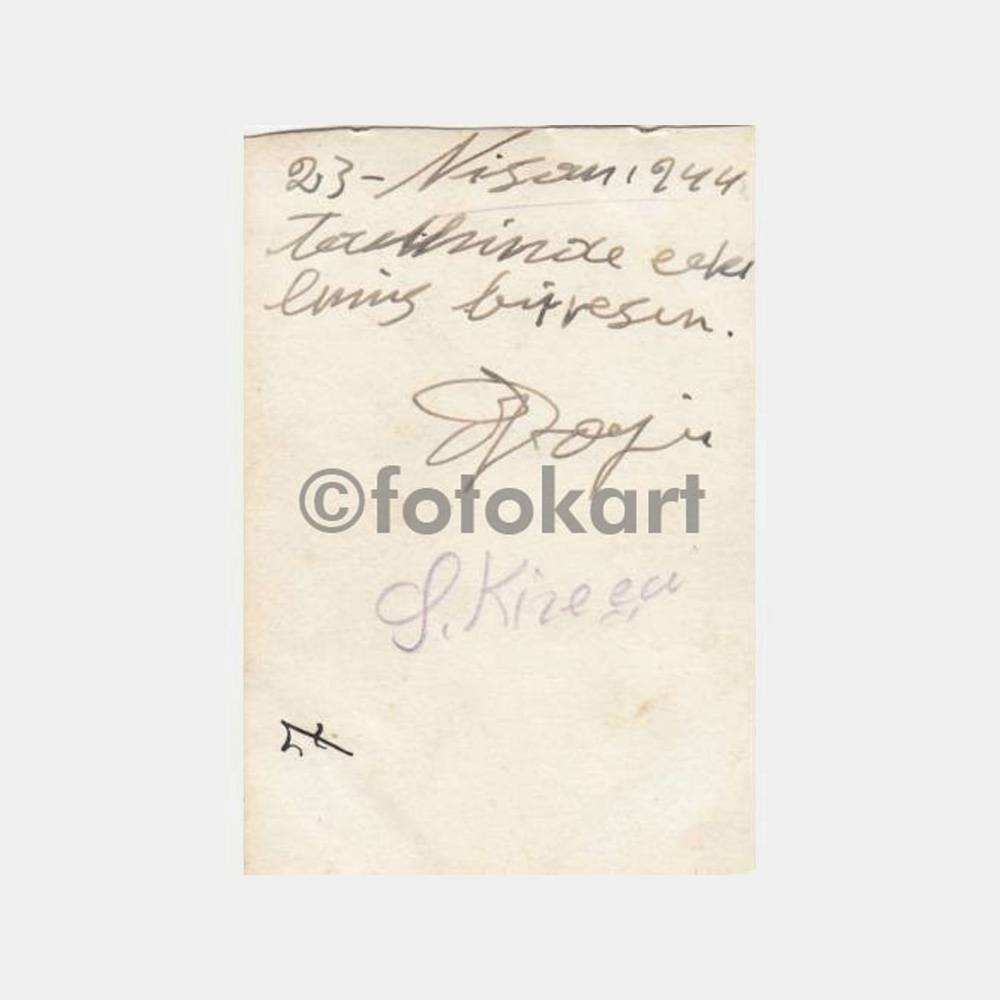 23-Nisan 1944
tarihinde çeki
lmiş bir resim.
©fotokart
S. Kireçci